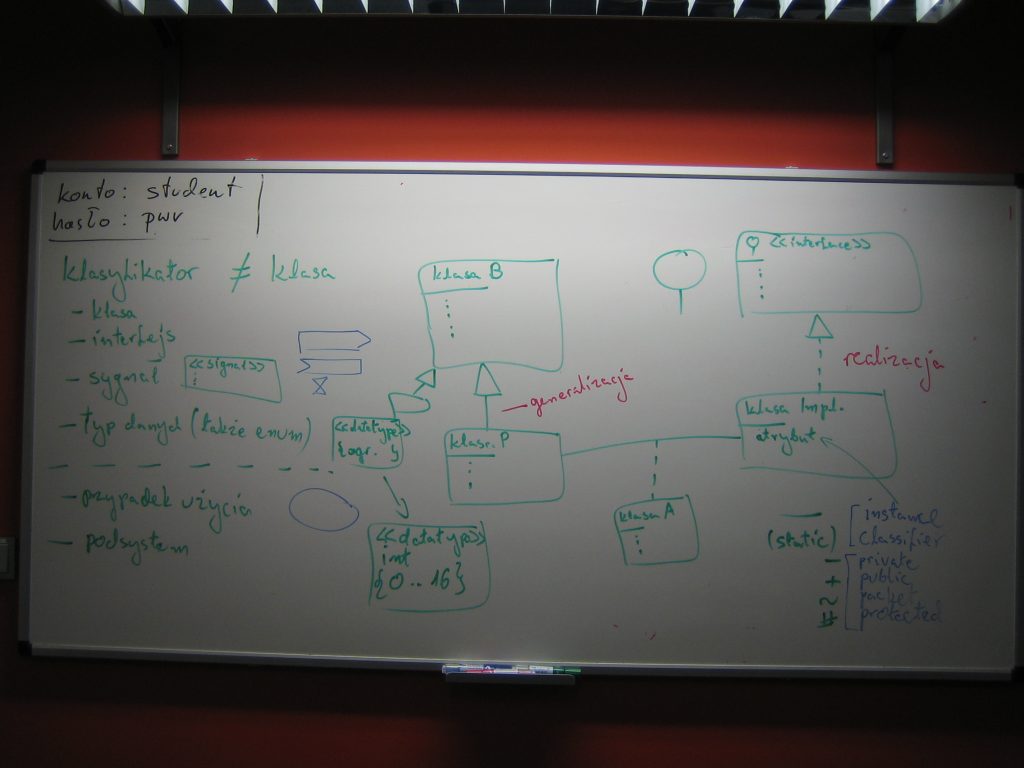 konto: student
hasło: pwr
klasyfikator ≠ klasa
- klasa
- interfejs
- sygnał
<<signal>>
- typ danych (także enum)
- przypadek użycia
- podsystem
klasa B
<<datatype>>
{ogr. }
<<datatype>>
int
{0 .. 16}
klasa P
generalizacja
<<interface>>
realizacja
klasa Impl.
atrybut
klasa A
(static)
instance
classifier
- private
+ public
~ packet
# protected